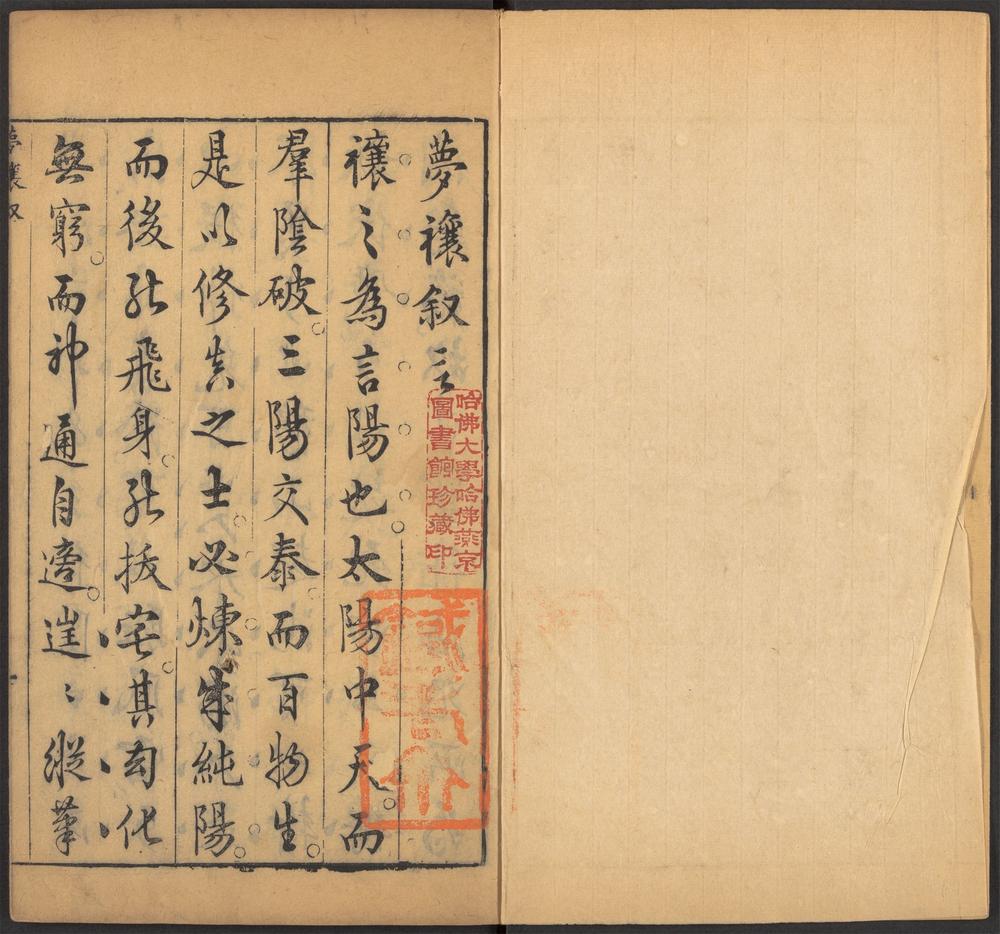 夢禳叙言
哈佛大學哈佛燕京
圖書館珍藏印
禳〻為言陽也。太陽中天。而
羣陰破。三陽交泰。而百物生。
是以修真之士。必煉成純陽。
而後能飛身。能拔宅。其化
無窮。而神通自適。〻縱筆
夢禳叙